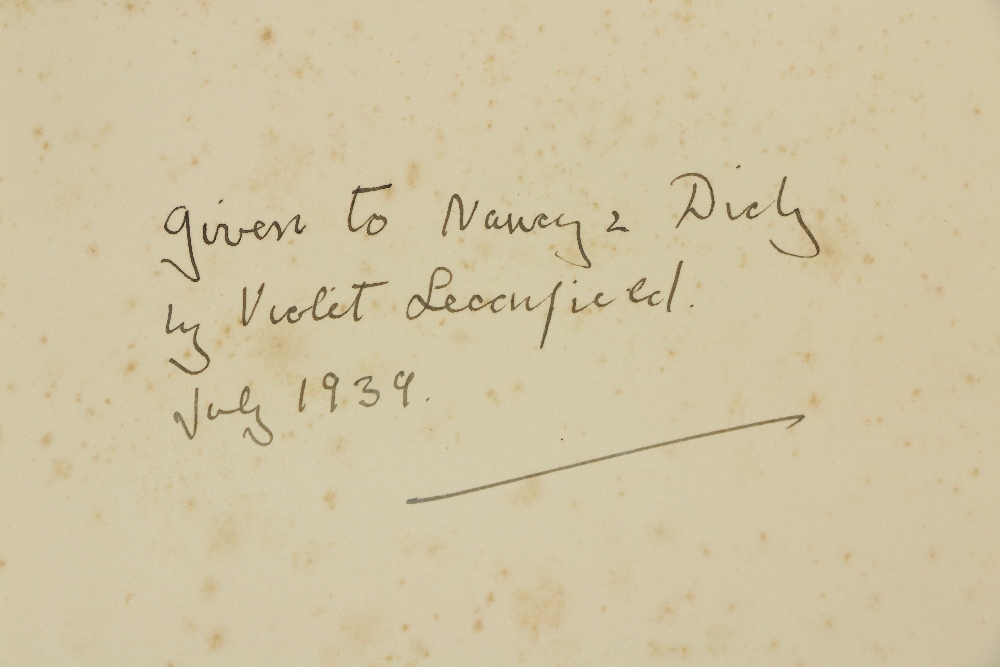 Given to Nancy & Dicky
by Violet Leconfield.
July 1939.